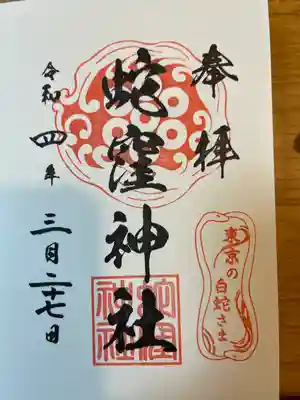 奉拝
蛇窪神社
蛇窪
神社
東京の
白蛇さま
令和四年
三月二十七日